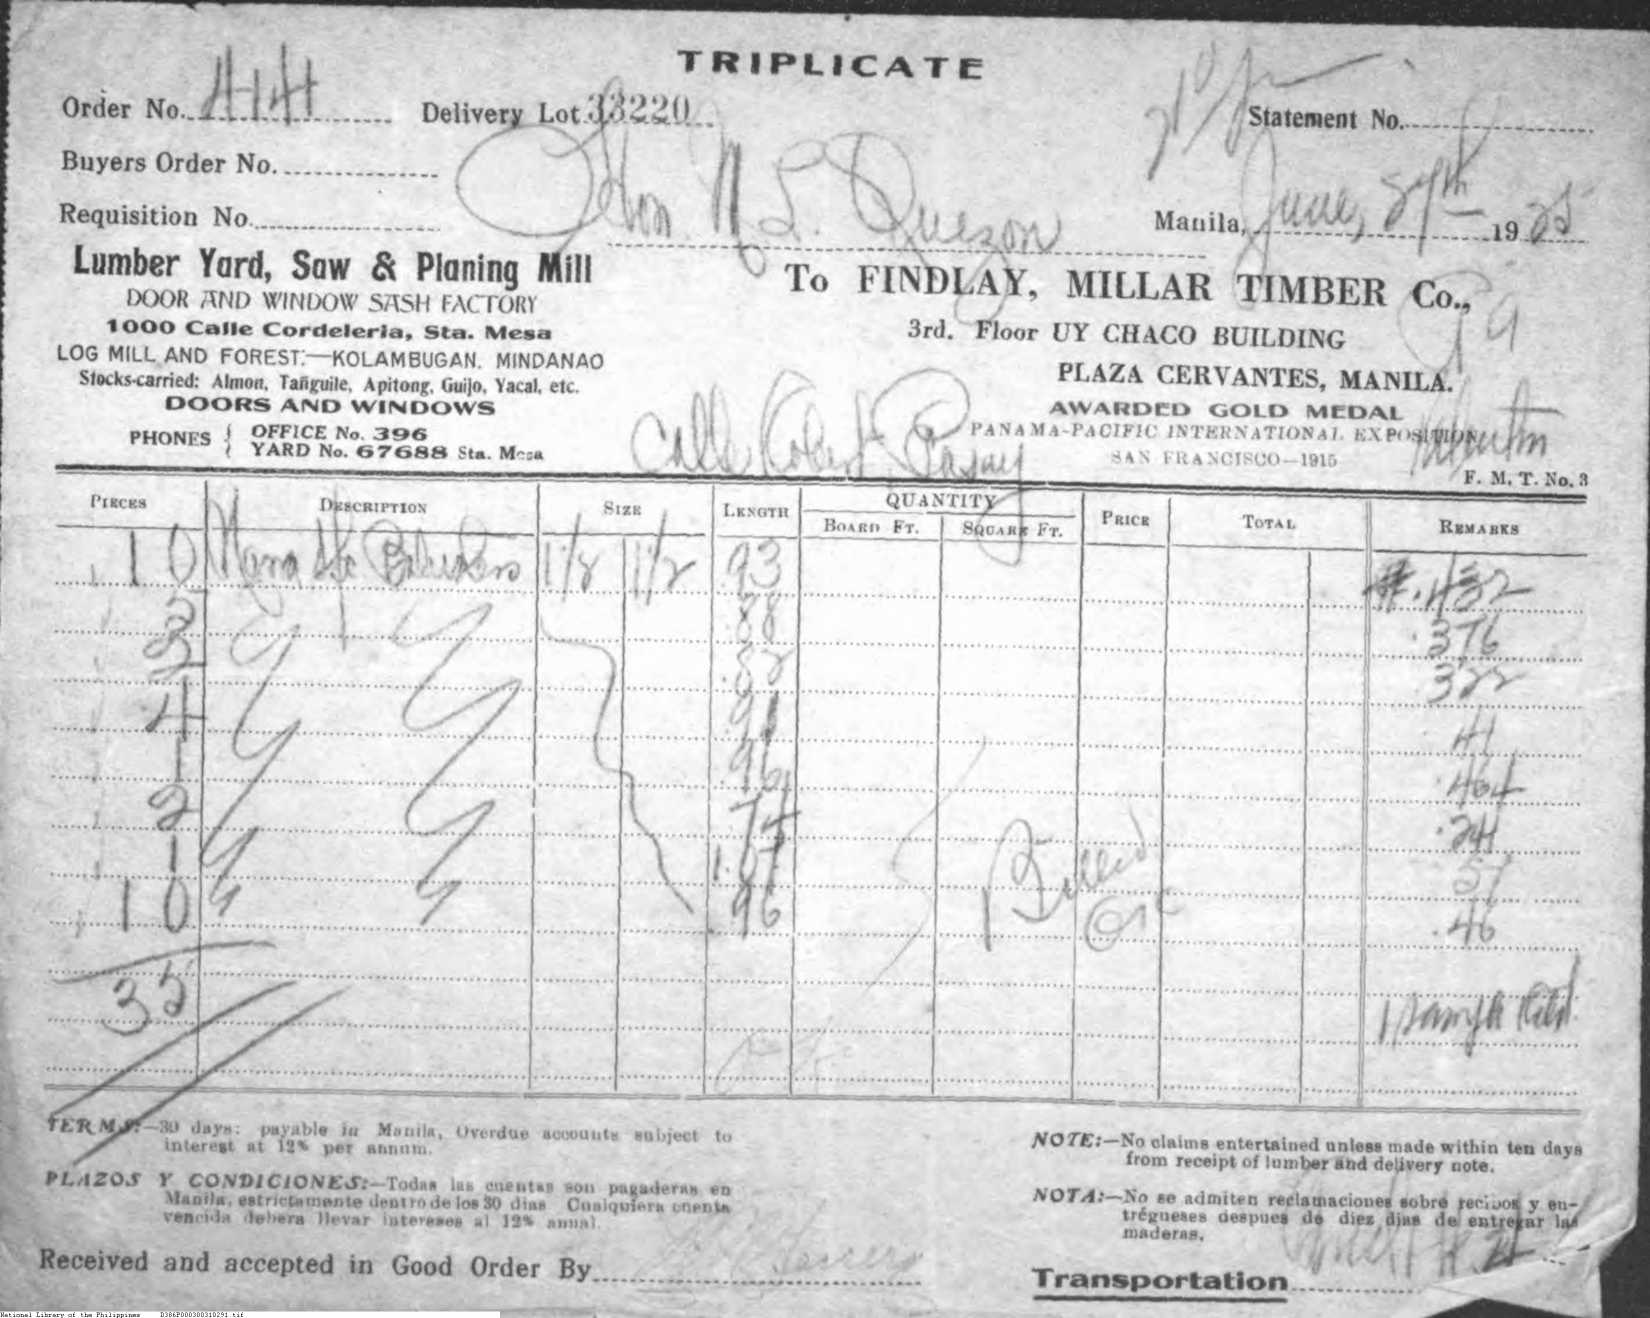 TRIPLICATE
Order No. 4141 Delivery Lot 33220 Statement No.
Buyers Order No.
Hon. M. L. Quezon
Requisition No. Manila, June, 27th 1925
Lumber Yard, Saw & Planing Mill
DOOR AND WINDOW SASH FACTORY
1000 Calle Cordeleria, Sta. Mesa
LOG MILL AND FOREST:—KOLAMBUGAN, MINDANAO
Stocks-carried: Almon, Tañguile, Apitong, Guijo, Yacal, etc.
DOORS AND WINDOWS
PHONES { OFFICE No. 396
YARD No. 67688 Sta. Mesa
To FINDLAY, MILLAR TIMBER Co.,
3rd. Floor UY CHACO BUILDING
PLAZA CERVANTES, MANILA.
AWARDED GOLD MEDAL
PANAMA-PACIFIC INTERNATIONAL EXPOSITION
SAN FRANCISCO—1915
Calle Pasay
F. M. T. No. 3
PIECES DESCRIPTION SIZE LENGTH QUANTITY PRICE TOTAL REMARKS
BOARD FT. SQUARE FT.
10 1 1/8 1 1/2 .93 .432
2 .88 .376
.322
4 41
1 .464
2 .241
1 57
10 .96 .46
35
Billed
TERMS:—30 days: payable in Manila, Overdue accounts subject to
interest at 12% per annum.
PLAZOS Y CONDICIONES:—Todas las cuentas son pagaderas en
Manila, estrictamente dentro de los 30 dias Cualquiera cuenta
vencida debera llevar intereses al 12% annal.
NOTE:—No claims entertained unless made within ten days
from receipt of lumber and delivery note.
NOTA:—No se admiten reclamaciones sobre recibos y en-
trégueses despues de diez dias de entregar las
maderas.
Received and accepted in Good Order By
Transportation
National Library of the Philippines D386P000300310291.tif